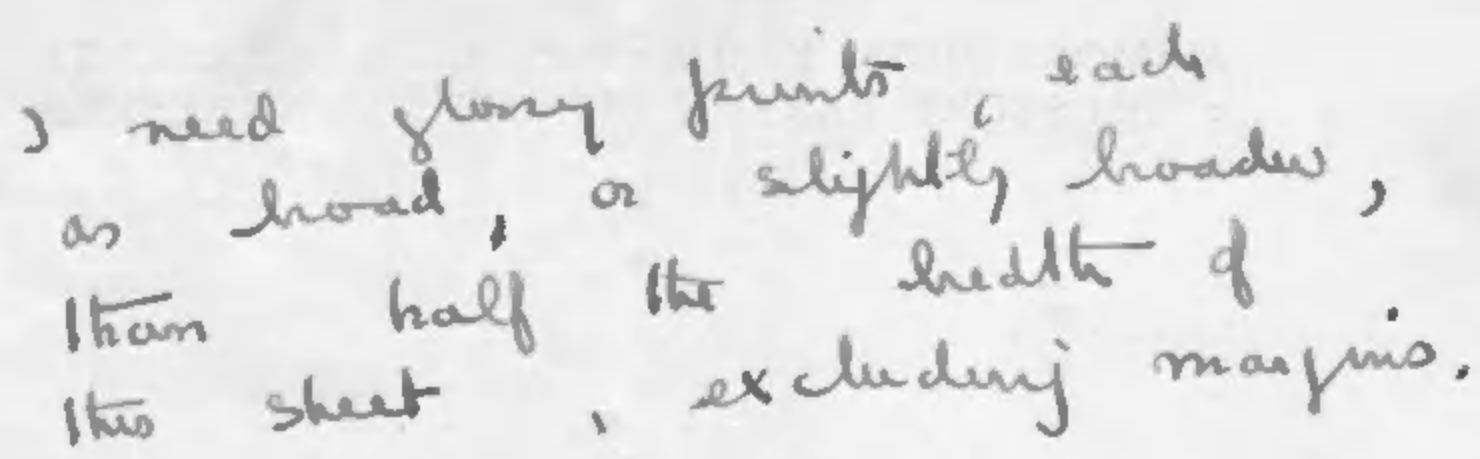 I need glossy prints, each
as broad, or slightly broader,
than half the bredth of
this sheet, excluding margins.